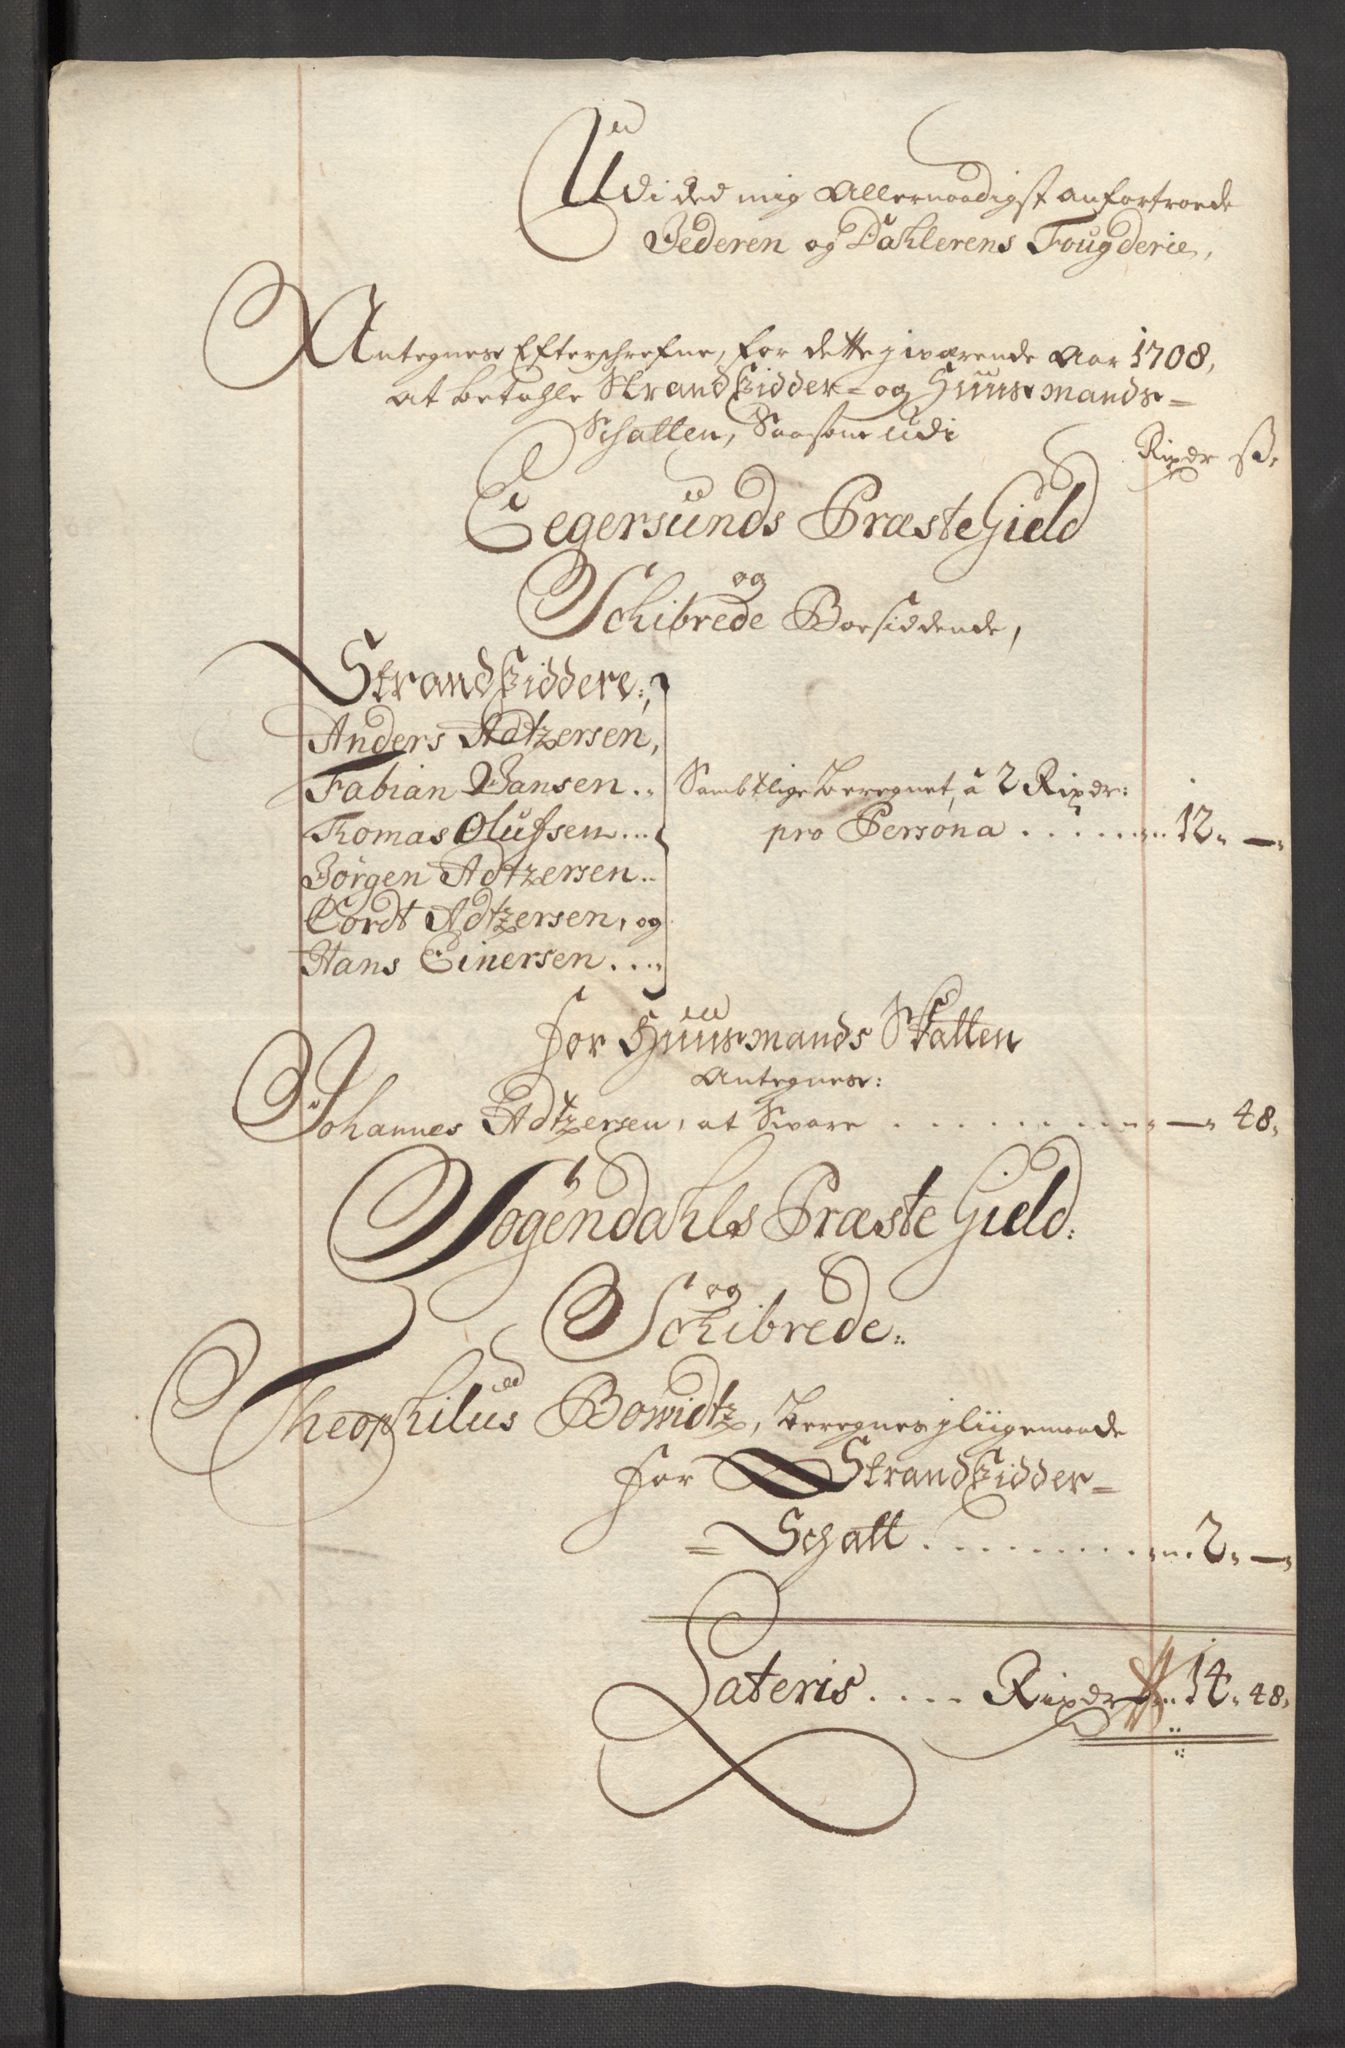 Udi ded mig Allernaadigst anfortroede
Jederen og Dahlerens Fougderie,
Antegnes Efterschrefne, for dette jiværende Aar 1708,
at betahle Strandsidder- og Huusmands-
Schatten, Saasom udi
Rixdr ß.
Eegersunds Præste Gield
og
Schibrede Boesiddende,
Strandsiddere;
Anders Adtzersen,
Fabian Jansen ..
Thomas Olufsen ...
Jørgen Adtzersen ..
Cordt Adtzersen, og
Hans Einersen ....
Sambtlige beregnet, á 2 Rixdr:
pro Persona ......... 12. —
for Huusmands Skatten
Antegnes:
Johannes Adtzersen, at Svare ......... — 48.
Sogendahls Præste Gield:
og
Schibrede..
Theophilus Bowidtz, beregnes jliigemaade
for Strandsidder-
= Schatt ............ 2. —
Lateris .... Rixdr .. 14. 48.